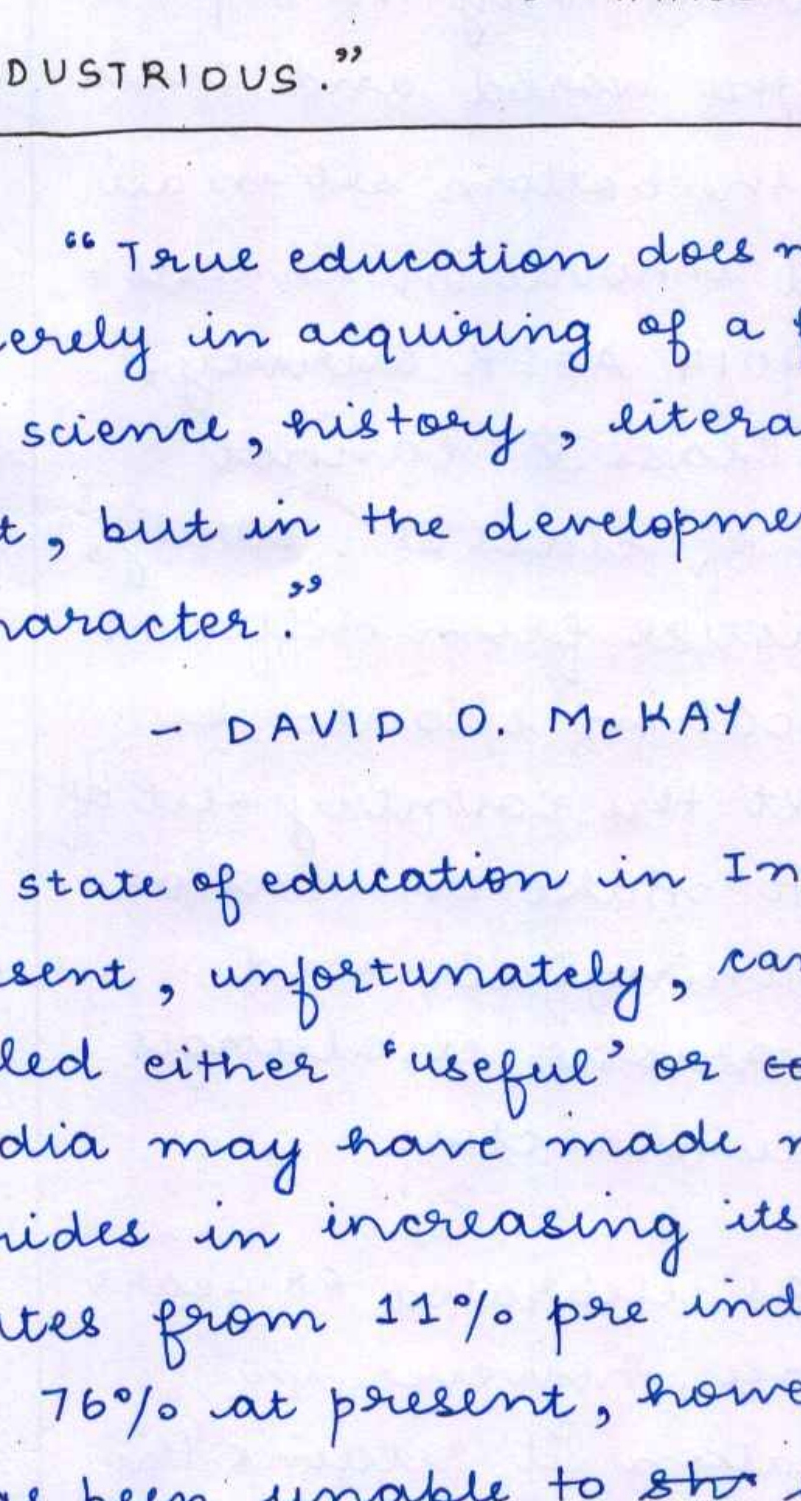 DUSTRIOUS."
"True education does n
erely in acquiring of a f
science, history, litera
t, but in the developmen
haracter."
- DAVID O. McKAY
state of education in In
esent, unfortunately, can
led either 'useful' or
dia may have made
rides in increasing its
ates from 11% pre ind
76% at present, howe
been unable to